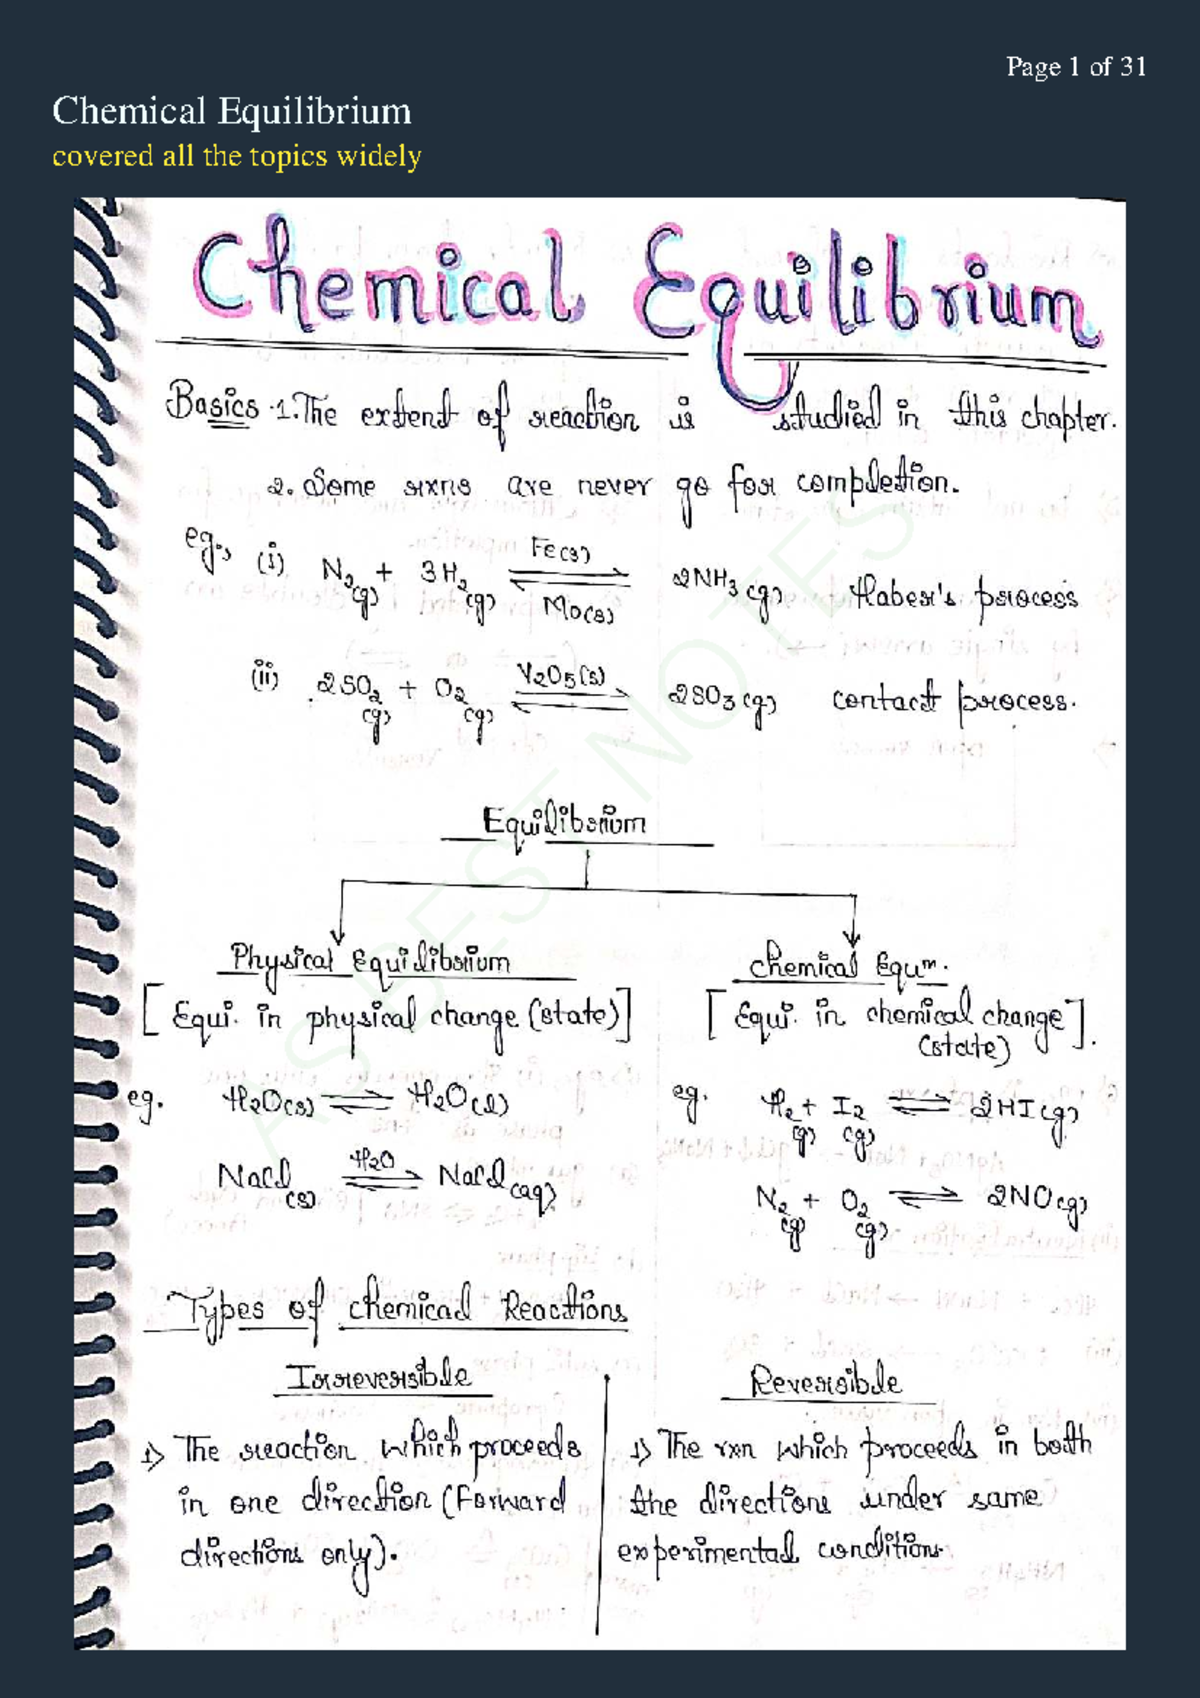 Page 1 of 31
Chemical Equilibrium
covered all the topics widely
Chemical Equilibrium
Basics 1. The extent of reaction is studied in this chapter.
2. Some rxns are never go for completion.
eg., (i) N2(g) + 3H2(g) ⇌ 2NH3(g) Haber's process
Fe(s)
Mo(s)
(ii) 2SO2(g) + O2(g) ⇌ 2SO3(g) contact process.
V2O5(s)
Equilibrium
Physical Equilibrium
[Equi. in physical change (state)]
eg. H2O(s) ⇌ H2O(l)
NaCl(s) ⇌ NaCl(aq)
H2O
Chemical Equm.
[Equi. in chemical change].
(state)
eg. H2(g) + I2(g) ⇌ 2HI(g)
N2(g) + O2(g) ⇌ 2NO(g)
Types of chemical Reactions
Irreversible
1) The reaction which proceeds
in one direction (Forward
directions only).
Reversible
1) The rxn which proceeds in both
the directions under same
experimental conditions.
AS BEST NOTES